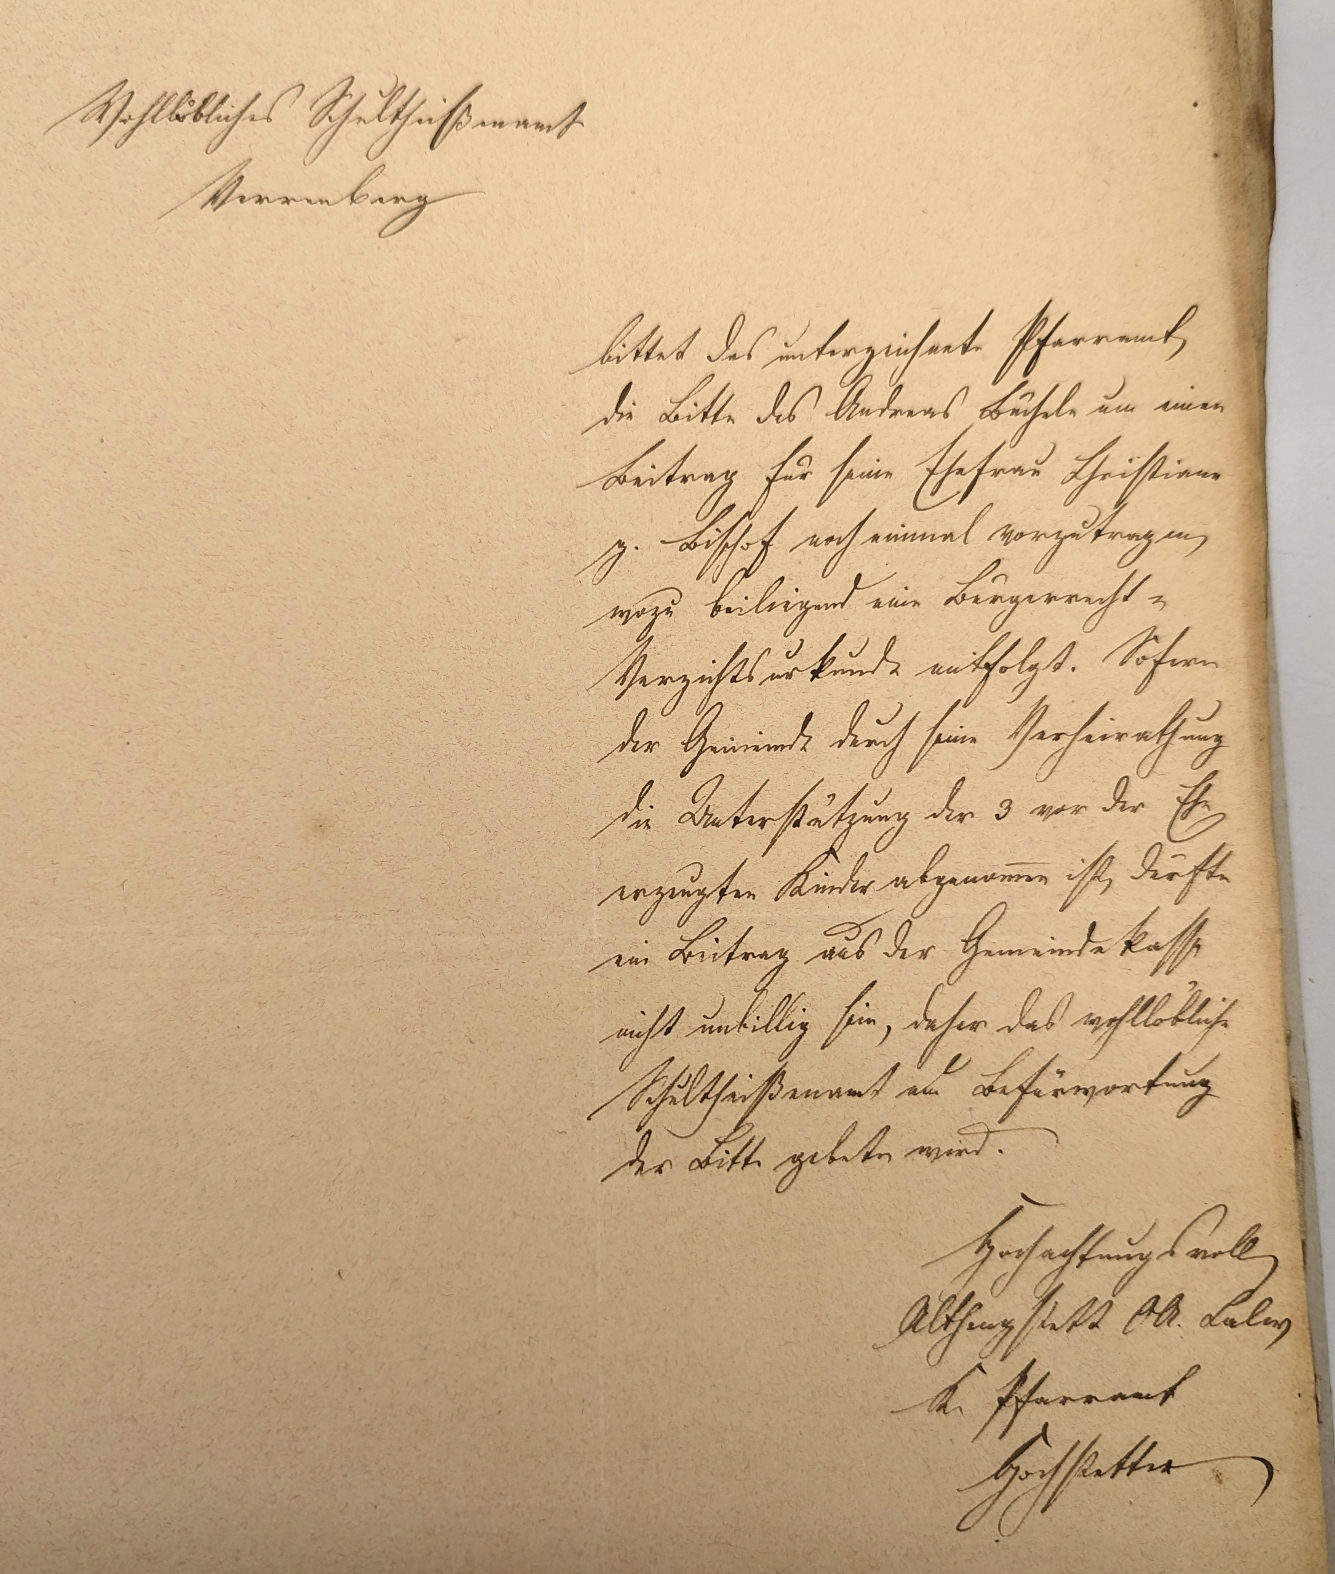 Wohllöbliches Schultheißenamt
Verrenberg
bittet das unterzeichnete Pfarramt,
die Bitte des Andreas Büchele um einen
Beitrag für seine Ehefrau Christiane
g. Bischof noch einmal vorzutragen,
wozu beiliegend eine Bürgerrecht-
Verzichtsurkunde mitfolgt. Sofern
der Gemeinde durch seine Verheirathung
die Unterstützung der 3 vor der Ehe
erzeugten Kinder abgenommen ist, dürfte
ein Beitrag aus der Gemeindekasse
nicht unbillig sein, daher das wohllöbliche
Schultheißenamt um Befürwortung
der Bitte gebeten wird.
Hochachtungsvoll
Althengstett OA. Calw
K. Pfarramt
Hochstetter